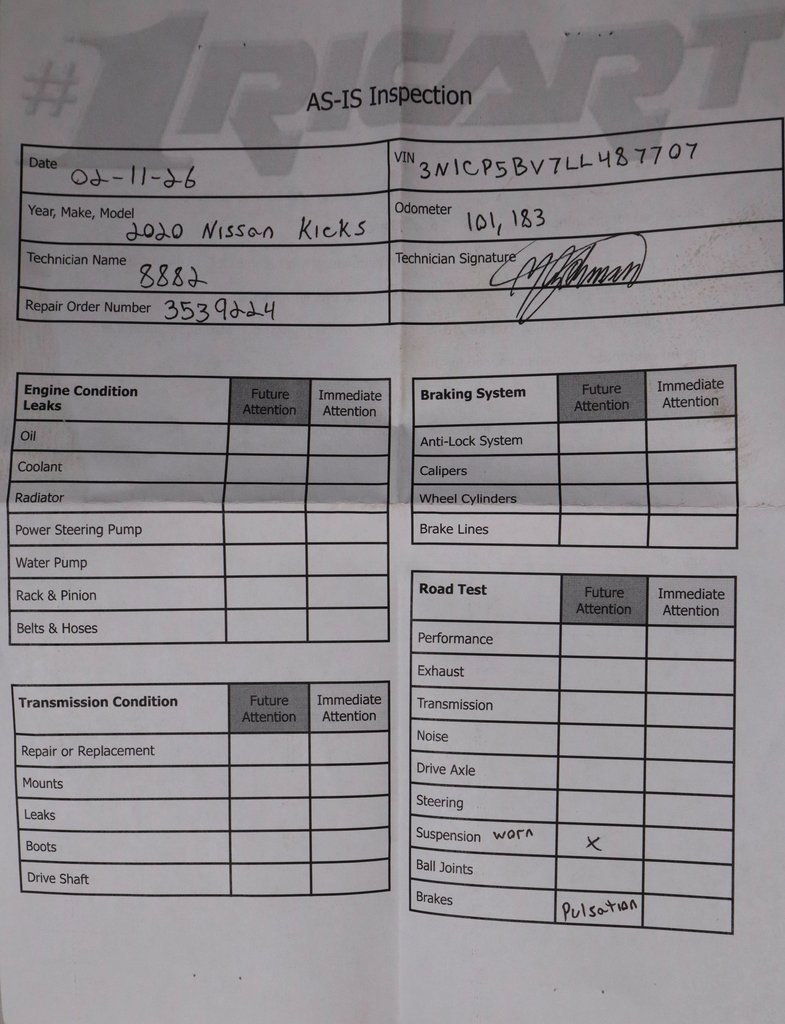 #1 RICART
AS-IS Inspection
Date 02-11-26
VIN 3N1CP5BV7LL487707
Year, Make, Model 2020 Nissan Kicks
Odometer 101,183
Technician Name 8882
Technician Signature
Repair Order Number 3539224
Engine Condition Leaks Future Attention Immediate Attention
Oil
Coolant
Radiator
Power Steering Pump
Water Pump
Rack & Pinion
Belts & Hoses
Transmission Condition Future Attention Immediate Attention
Repair or Replacement
Mounts
Leaks
Boots
Drive Shaft
Braking System Future Attention Immediate Attention
Anti-Lock System
Calipers
Wheel Cylinders
Brake Lines
Road Test Future Attention Immediate Attention
Performance
Exhaust
Transmission
Noise
Drive Axle
Steering
Suspension worn X
Ball Joints
Brakes Pulsation